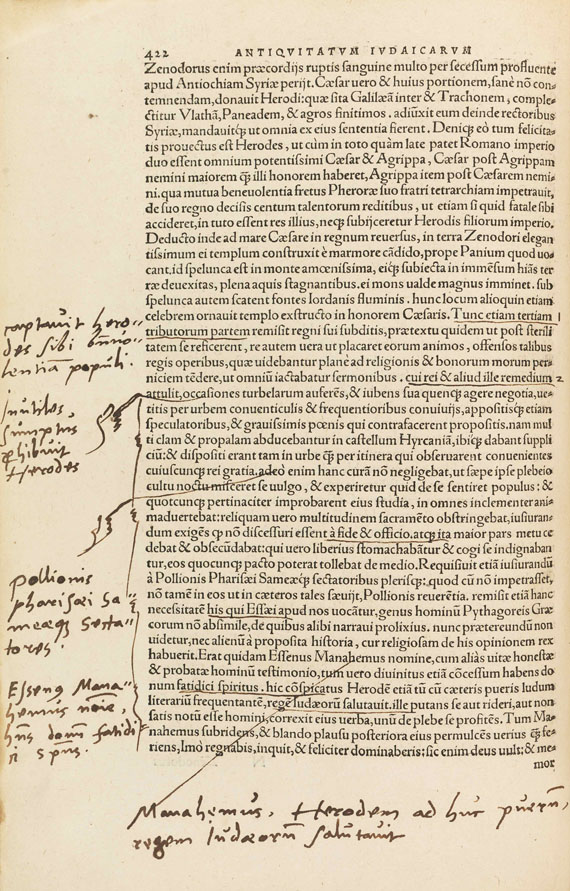 422 ANTIQVITATVM IVDAICARVM
Zenodorus enim præcordijs ruptis sanguine multo per secessum profluente
apud Antiochiam Syriæ perijt. Cæsar uero & huius portionem, sanè nō con-
temnendam, donauit Herodi: quæ sita Galilæā inter & Trachonem, comple-
ctitur Vlathā, Paneadem, & agros finitimos. adiūxit eum deinde rectoribus
Syriæ, mandauitq́; ut omnia ex eius sententia fierent. Deniq; eò tum felicita-
tis prouectus est Herodes, ut cùm in toto quàm late patet Romano imperio
duo essent omnium potentissimi Cæsar & Agrippa, Cæsar post Agrippam
nemini maiorem q̃; illi honorem haberet, Agrippa item post Cæsarem nemi-
ni. qua mutua beneuolentia fretus Pheroræ suo fratri tetrarchiam impetrauit,
de suo regno decisis centum talentorum reditibus, ut etiam si quid fatale sibi
accideret, in tuto essent res illius, neq; subijceretur Herodis filiorum imperio.
Deducto inde ad mare Cæsare in regnum reuersus, in terra Zenodori elegan
tissimum ei templum construxit è marmore cādido, prope Panium quod uo-
cant. id spelunca est in monte amœnissima, eiq́; subiecta in immēsum hiās ter
ræ deuexitas, plena aquis stagnantibus. ei mons ualde magnus imminet. sub
spelunca autem scatent fontes Iordanis fluminis. hunc locum alioquin etiam
celebrem ornauit templo exstructo in honorem Cæsaris. Tunc etiam tertiam 1
tributorum partem remisit regni sui subditis, prætextu quidem ut post sterili
tatem se reficerent, re autem uera ut placaret eorum animos, offensos talibus
regis operibus, quæ uidebantur planè ad religionis & bonorum morum per-
niciem tēdere, ut omniū iactabatur sermonibus. cui rei & aliud ille remedium 2
attulit, occasiones turbelarum auferēs, & iubens sua quenq; agere negotia, ue-
titis per urbem conuenticulis & frequentioribus conuiuijs, appositisq́; etiam
speculatoribus, & grauissimis pœnis qui contrafacerent propositis. nam mul
ti clam & propalam abducebantur in castellum Hyrcaniā, ibiq́; dabant suppli
ciū: & dispositi erant tam in urbe q̃; per itinera qui obseruarent conuenientes
cuiuscunq; rei gratia. adeò enim hanc curā nō negligebat, ut sæpe ipse plebeio
cultu noctu misceret se uulgo, & experiretur quid de se sentiret populus: &
quotcunq; pertinaciter improbarent eius studia, in omnes inclementer ani-
maduertebat: reliquam uero multitudinem sacramēto obstringebat, iusiuran-
dum exigēs q̃; nō discessuri essent à fide & officio. atq; ita maior pars metu ce
debat & obsecūdabat: qui uero liberius stomachabātur & cogi se indignaban
tur, eos quocunq; pacto poterat tollebat de medio. Requisiuit etiā iusiurandū
à Pollionis Pharisæi Sameæq́; sectatoribus plerisq;: quod cū nō impetrasset,
nō tamē in eos ut in cæteros tales sæuijt, Pollionis reuerētia. remisit etiā hanc
necessitatē his qui Essæi apud nos uocātur, genus hominū Pythagoreis Græ
corum nō absimile, de quibus alibi narraui prolixius. nunc prætereundū non
uidetur, nec alienū à proposita historia, cur religiosam de his opinionem rex
habuerit. Erat quidam Essenus Manahemus nomine, cum aliàs uitæ honestæ
& probatæ hominū testimonio, tum uero diuinitus etiā cōcessum habens do
num fatidici spiritus. hic cōspicatus Herodē etiā tū cū cæteris pueris ludum
literariū frequentantē, regē Iudæorū salutauit. ille putans se aut rideri, aut non
satis notū esse homini, correxit eius uerba, unū de plebe se profitēs. Tum Ma-
nahemus subridens, & blando plausu posteriora eius permulcēs uerius q̃; fe-
riens, Imò regnabis, inquit, & feliciter dominaberis: sic enim deus uult: & me-
mor
captauit hero-
des sibi beniuo-
lentiā populi.
Inutiles
sumptus
phibuit
Herodes
Pollionis
pharisæi Sa-
meæq; Secta-
tores.
Essenꝰ Mana-
hemus noīe,
hūs donū fatidi
ci spūs.
Manahemus, Herodem ad huc puerū,
regem Iudæorū Salutauit